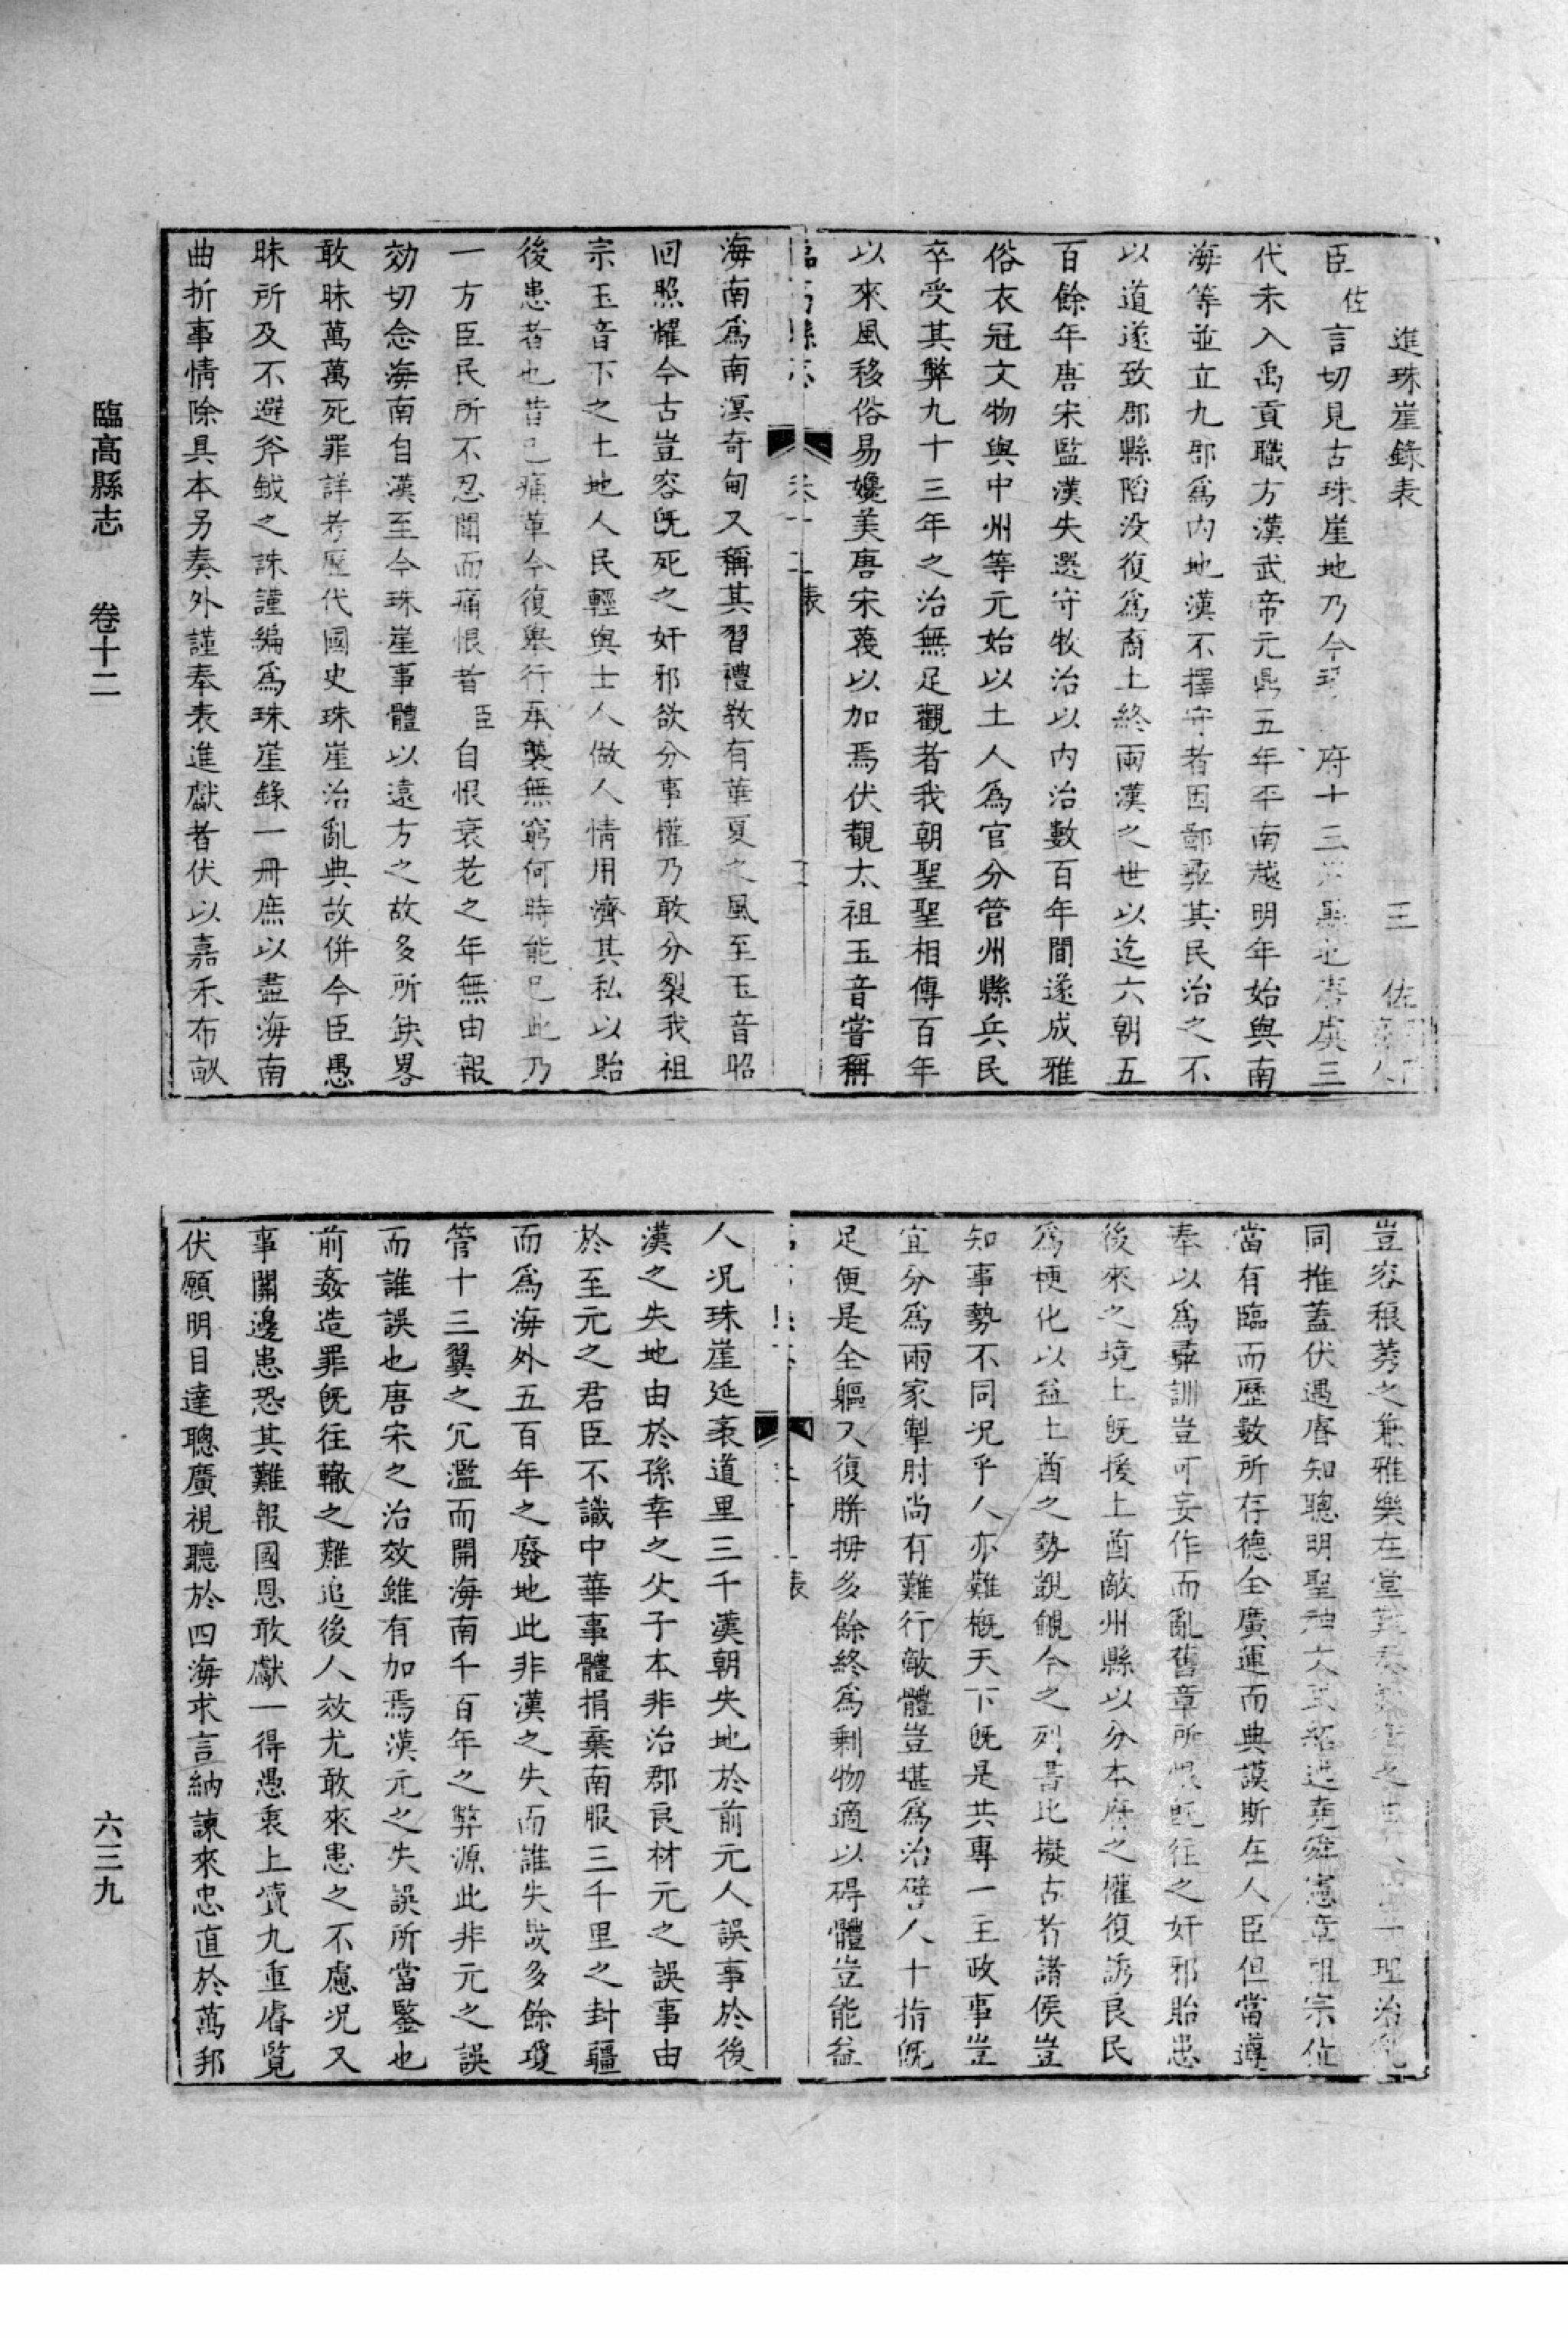 進珠崖錄表 三 佐
臣佐言切見古珠崖地乃今 府十三 縣地唐虞三
代未入禹貢職方漢武帝元鼎五年平南越明年始與南
海等並立九郡爲內地漢不擇守者因鄙棄其民治之不
以道遂致郡縣陷没復爲裔土終兩漢之世以迄六朝五
百餘年唐宋監漢失選守牧治以內治數百年間遂成雅
俗衣冠文物與中州等元始以土人爲官分管州縣兵民
卒受其弊九十三年之治無足觀者我朝聖聖相傳百年
以來風移俗易媲美唐宋蔑以加焉伏覩太祖玉音嘗稱
臨高縣志 卷十二 表 三
海南爲南溟奇甸又稱其習禮教有華夏之風至玉音昭
回照耀今古豈容旣死之奸邪欲分事權乃敢分裂我祖
宗玉音下之土地人民輕與士人做人情用濟其私以貽
後患者也昔已痛革今復舉行承襲無窮何時能已此乃
一方臣民所不忍聞而痛恨者臣自恨衰老之年無由報
効切念海南自漢至今珠崖事體以遠方之故多所缺畧
敢昧萬萬死罪詳考歷代國史珠崖治亂典故併今臣愚
昧所及不避斧鉞之誅謹編爲珠崖錄一冊庶以盡海南
曲折事情除具本另奏外謹奉表進獻者伏以嘉禾布畝
豈容稂莠之兼雅樂在堂 之 理治
同推蓋伏遇睿知聰明聖神文武紹述堯舜憲章祖宗位
當有臨而歷數所存德全廣運而典謨斯在人臣但當遵
奉以爲彝訓豈可妄作而亂舊章所恨旣往之奸邪貽患
後來之境土旣援土酋敵州縣以分本府之權復誘良民
爲梗化以益土酋之勢覬覦今之列書比擬古者諸侯豈
知事勢不同况乎人亦難概天下旣是共專一主政事豈
宜分爲兩家掣肘尚有難行敵體豈堪爲治譬人十指旣
足便是全軀又復駢拇多餘終爲剩物適以碍體豈能益
表
人况珠崖延袤道里三千漢朝失地於前元人誤事於後
漢之失地由於孫幸之父子本非治郡良材元之誤事由
於至元之君臣不識中華事體捐棄南服三千里之封疆
而爲海外五百年之廢地此非漢之失而誰失歟多餘瓊
管十三翼之冗濫而開海南千百年之弊源此非元之誤
而誰誤也唐宋之治效雖有加焉漢元之失誤所當鑒也
前姦造罪旣往轍之難追後人效尤敢來患之不慮况又
事關邊患恐其難報國恩敢獻一得愚衷上瀆九重睿覧
伏願明目達聰廣視聽於四海求言納諫來忠直於萬邦
臨高縣志 卷十二
六三九